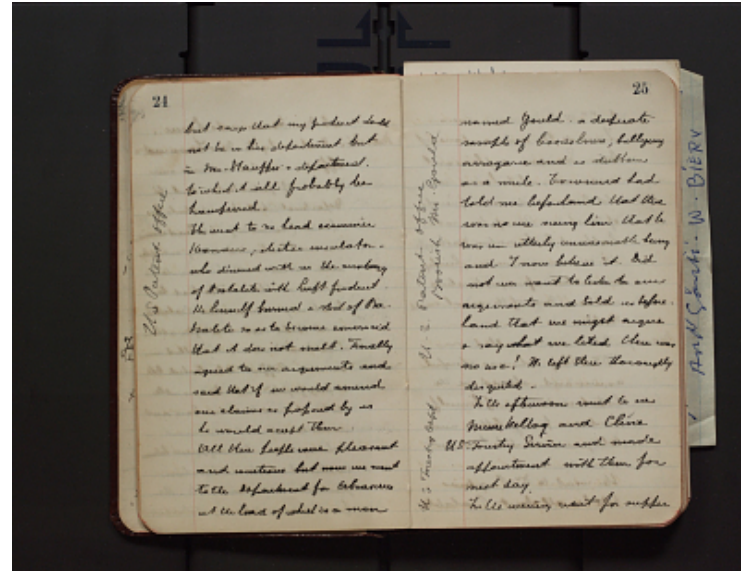 24
U.S. Patent Office
but says that my product
not be in his department but
in Mr. department.
to which it will probably be

We went to see head examiner
, electric insulator.
who discussed with us the analogy
of Bakelite with product
He himself burned a of Ba-
kelite so as to become convinced
that it does not melt. Finally
agreed to our arguments and
said that if we would amend
our claims as proposed by us
he would accept them.
All these people were pleasant
and courteous but now we went
to the department for
at the head of which is a man
25
U.S. Patent Office
Boorish Mr Gould
named Gould. a desperate
sample of boorishness, bullying
arrogance and as stubborn
as a mule. Townsend had
told me beforehand that there
was no use seeing him that he
was an utterly unreasonable being
and I now believe it. Did
not even want to listen to our
arguments and told us before-
hand that we might argue
or say what we liked there was
no use! We left there thoroughly
disgusted.
In the afternoon went to see
Kellog and Cline
U.S. Forestry Service and made
appointment with them for
next day.
In the evening went for supper
U S Forestry Dept.
W. BIERY